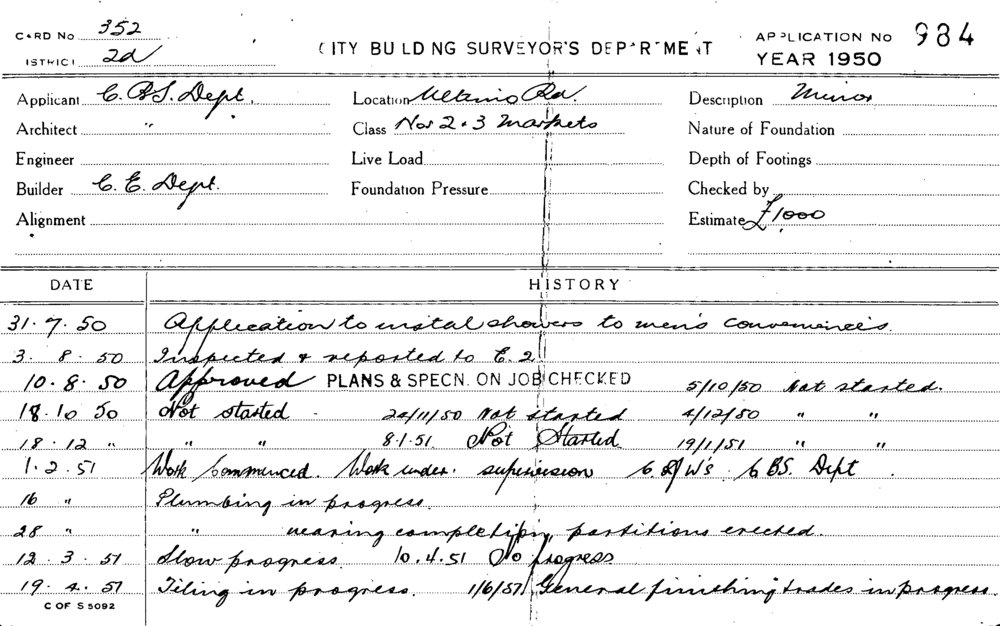 CARD No 352
CITY BUILDING SURVEYOR'S DEPARTMENT
APPLICATION No 984
ISTRICT 2d
YEAR 1950
Applicant C.B.S. Dept.
Location Ultimo Rd.
Description Minor
Architect "
Class Nos 2 & 3 Markets
Nature of Foundation
Engineer
Live Load
Depth of Footings
Builder C. E. Dept.
Foundation Pressure
Checked by
Alignment
Estimate £1000
DATE HISTORY
31.7.50 Application to instal showers to men's conveniences.
3. 8. 50 Inspected & reported to E.2
10.8.50 Approved PLANS & SPECN. ON JOB CHECKED 5/10/50 Not started.
18.10.50 Not started - 24/11/50 Not started 4/12/50 " "
18.12 " " " 8.1.51 Not Started 19/1/51 " "
1.2.51 Work Commenced. Work under supervision C. of W's. C.B.S. Dept
16 " Plumbing in progress.
28 " " nearing completion, partitions erected.
12.3.51 Slow progress. 10.4.51 No progress
19.4.51 Tiling in progress. 1/6/51 General finishing trades in progress.
C OF S 5092